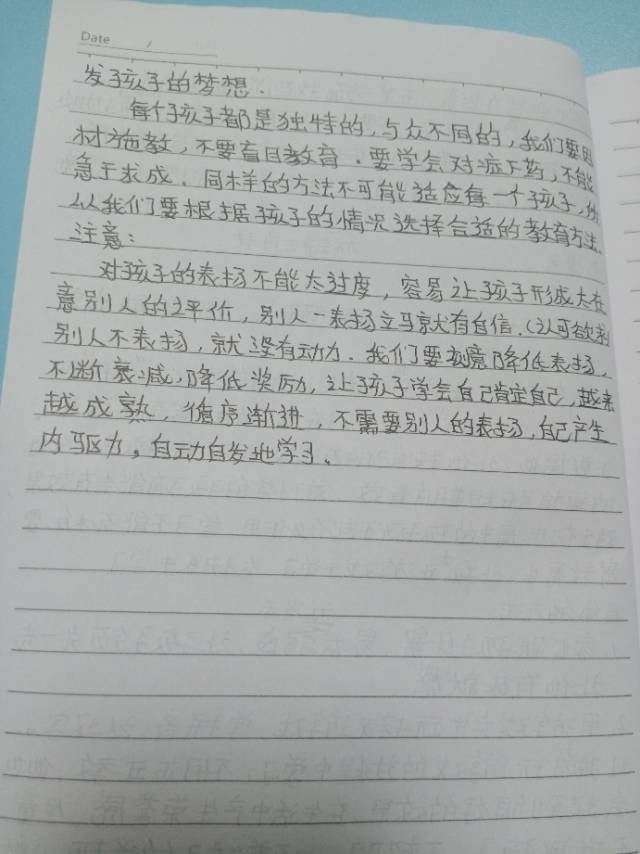 Date /
发孩子的梦想.
每个孩子都是独特的,与众不同的,我们要因
材施教,不要盲目教育.要学会对症下药,不能
急于求成、同样的方法不可能适应每一个孩子,
从我们要根据孩子的情况选择合适的教育方法.
注意:
对孩子的表扬不能太过度,容易让孩子形成太在
意别人的评价,别人一表扬立马就有自信.(认可
别人不表扬,就没有动力.我们要刻意降低表扬,
不断衰减,降低奖励,让孩子学会自己肯定自己,越来
越成熟,循序渐进,不需要别人的表扬,自己产生
内驱力。自动自发地学习、